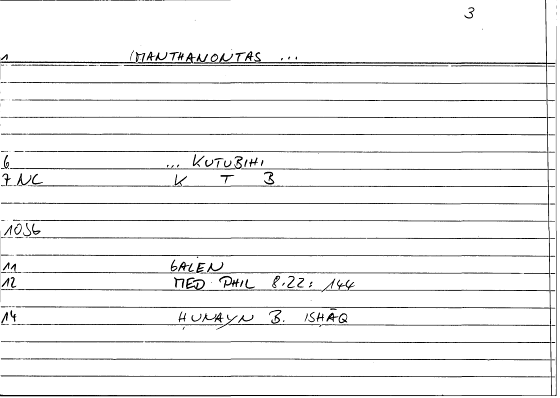 3
1 MANTHANONTAS ...
6 ... KUTUBIHI
7 NC K T B
10 SG
11 GALEN
12 MED PHIL 8.22: 144
14 ḤUNAYN B. ISḤĀQ